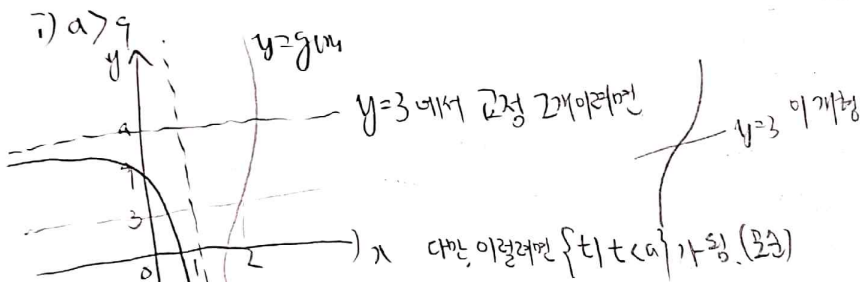 i) a>9
y
y=g(x)
a
y=3에서 교점 2개이려면
y=3 이 개형
7
3
0 1 2 x
다만, 이럴려면 {t|t<a}가 됨. (모순)